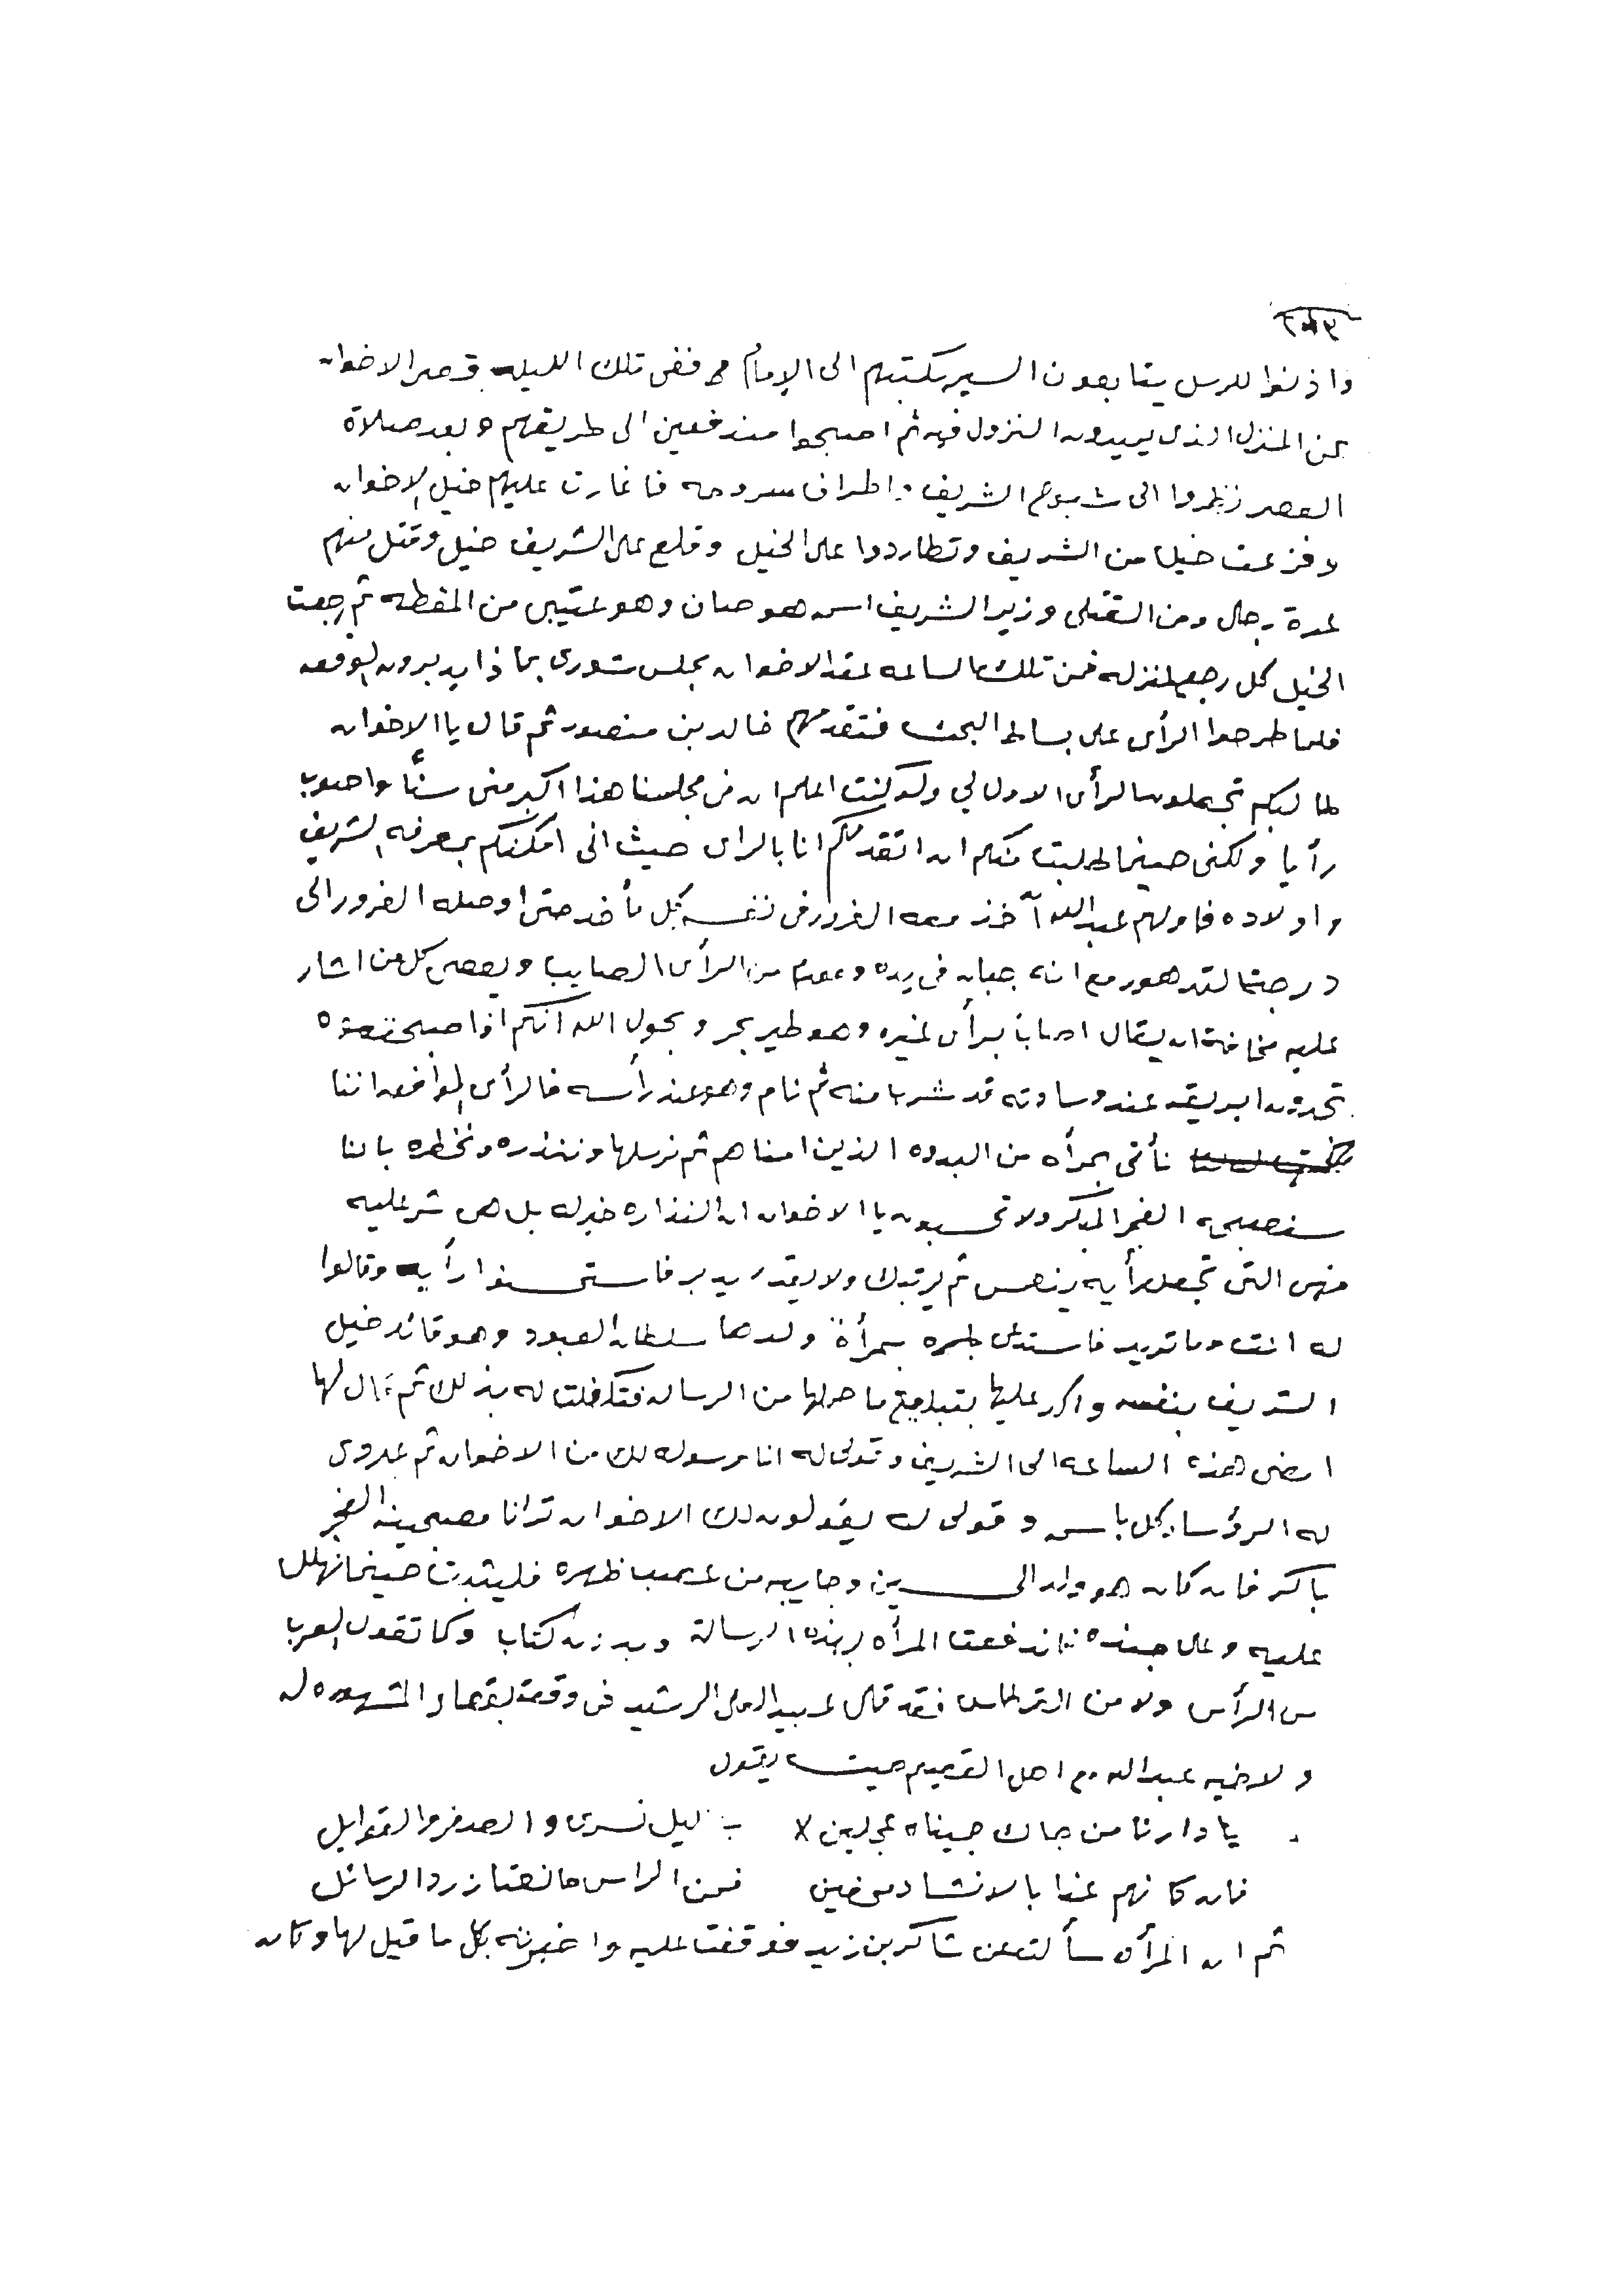 واذنوا للرسل يتابعون السير بكتبهم الى الإمام ففي تلك الليلة قصر الاخوان
عن المنزل الذي يريدون النزول فيه ثم اصبحوا مندفعين الى طريقهم وبعد صلاة
العصر نظروا الى شبوح الشريف واطراف سروحه فاغارت عليهم خيل الاخوان
لا فزعت خيل من الشريف وتطاردوا على الخيل وقلع على الشريف خيل وقتل منهم
عدة رجال ومن القتلى وزير الشريف اسمه هوصان وهو عتيبي من المقطه ثم رجعت
الخيل كل رجع لمنزله فمن تلك الساعه عقد الاخوان مجلس شورى بماذا يدبرون الوقعه
فلما طرحوا الرأي على بساط البحث فتقدمهم خالد بن منصور ثم قال يا الاخوان
طالبكم تجعلون الرأي الاول لي ولو كنت اعلم ان في مجلسنا هذا اكبر مني سنًا واصوب
رأيا ولكني حينما طلبت منكم ان اتقدمكم انا بالراي حيث اني امكنكم بمعرفة الشريف
واولاده فاولهم عبدالله آخذ معه الغرور في نفسه كل مأخذ حتى اوصله الغرور الى
درجة التدهور مع انه جبان في يده وعدم من الرأي الصايب ويعصي كل من اشار
عليه مخافة ان يقال اصاب برأي غيره وهو طير بحر وبحول الله انكم اذا صبحتموه
تجدون ابريقه عند وسادته قد شرب منه ثم نام وهو عند رأسه فالرأي الموافق اننا
نأتي بمرأه من البدوه الذين امناهم ثم نرسلها وننذره ونخطره باننا
سنصبحه الفجر المبكر ولا تحسبون يا الاخوان ان النذاره خير له بل هي شر عليه
فهي التي تجعل رأيه ينعس ثم يرتبك ولا يقدر يدبر فاستحسنوا رأيه وقالوا
له انت وما تريد فاستدعى بمرأة ولدها سلطان العبود وهو قائد خيل
الشريف بنفسه واكد عليها بتبليغ ما حملها من الرساله فتكفلت له بذلك ثم قال لها
امضي هذه الساعه الى الشريف وقولي له انا مرسوله لك من الاخوان ثم عددي
له الرؤساء كل باسمه وقولي له يقولون لك الاخوان ترانا مصبحينه الفجر
باكر فان كان هو ولد الحسين وجايبه من عصب ظهره فليثبت حينما نهلل
عليه وعلى جنده فاندفعت المرأه بهذه الرسالة وبدون كتاب وكما تقول العرب
من الرأس ولا من القرطاس فقد قال عبيد العلي الرشيد في وقعة بقعاء المشهوره له
ولاخيه عبدالله مع اهل القصيم حيث يقول
يا دارنا من جاك جيناه عجلين لا &nbsp; بـ ليل نسري والصفر والقوايل
فان كانهم عنا بالانشاد مخفين &nbsp; فمن الراس ما نعتاز رد الرسائل
ثم ان المرأه سألت عن شاكر بن زيد فوقفت عليه واخبرته بكل ما قيل لها وكان